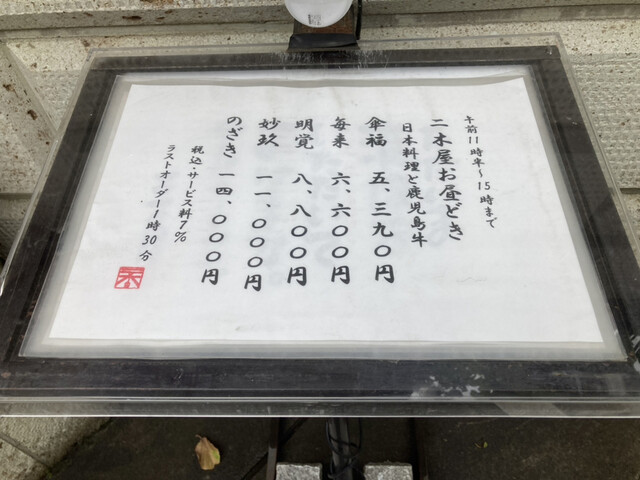 午前11時半〜15時まで
二木屋お昼どき
日本料理と鹿児島牛
傘福 五、三九〇円
毎来 六、六〇〇円
明覚 八、八〇〇円
妙玖 一一、〇〇〇円
のざき 一四、〇〇〇円
税込・サービス料7%
ラストオーダー1時30分